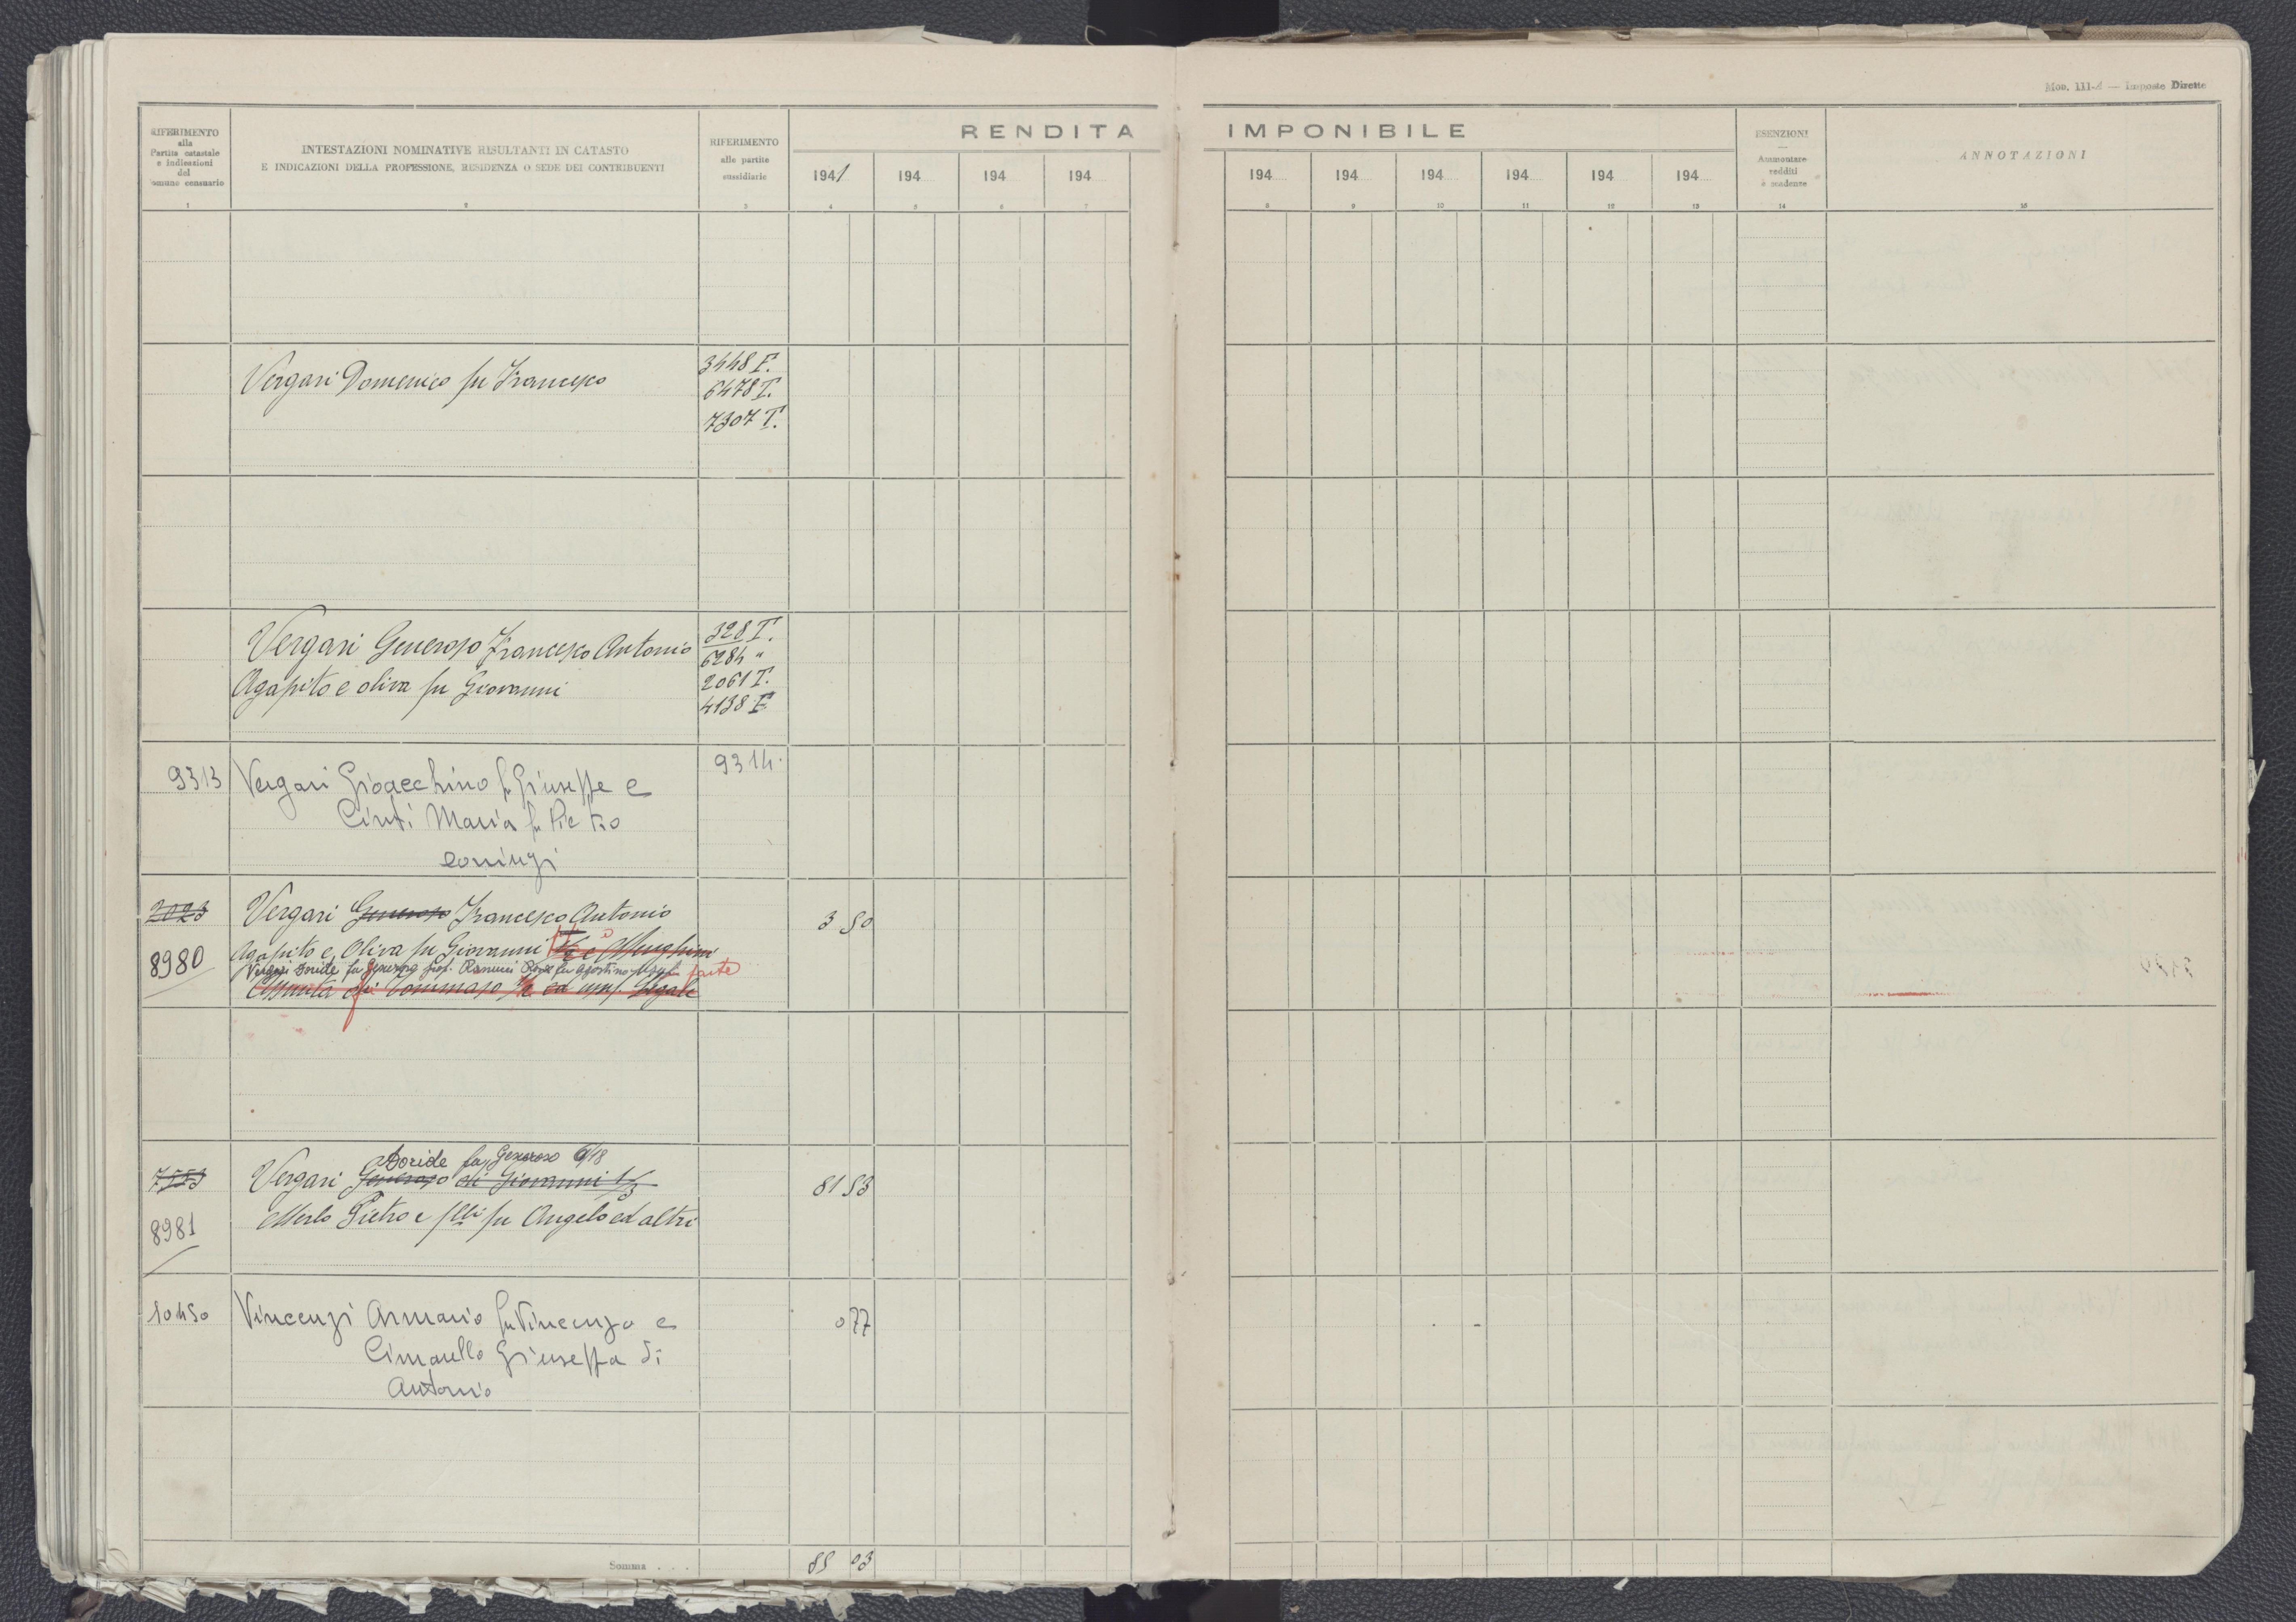 Mod. 111-A — Imposte Dirette
RIFERIMENTO
alla
Partita catastale
e indicazioni
del
Comune censuario
INTESTAZIONI NOMINATIVE RISULTANTI IN CATASTO
E INDICAZIONI DELLA PROFESSIONE, RESIDENZA O SEDE DEI CONTRIBUENTI
RIFERIMENTO
alle partite
sussidiarie
RENDITA IMPONIBILE
1941 194 194 194 194 194 194 194 194 194
ESENZIONI
—
Ammontare
redditi
e scadenze
ANNOTAZIONI
1 2 3 4 5 6 7 8 9 10 11 12 13 14 15
Vergari Domenico fu Francesco
3448 T.
6478 T.
7307 T.
Vergari Generoso Francesco Antonio
Agapito e oliva fu Giovanni
328 T.
6284 "
2061 T.
4138 T.
9313 Vergari Gioacchino fu Giuseppe e 9314
Cinti Maria fu Pietro
coniugi
2023 Vergari Generoso Francesco Antonio 3 50
8980 Agapito e Oliva fu Giovanni
Vergari Doride fu Generoso
parte
Assunta di Tommaso
Doride fu Generoso 6/18
7553 Vergari Generoso di Giovanni 1/3 81 53
8981 Merlo Pietro e flli fu Angelo ed altri
10450 Vincenzi Armario fu Vincenzo e 0 77
Cimarello Giuseppa di
Antonio
Somma . . . 85 03